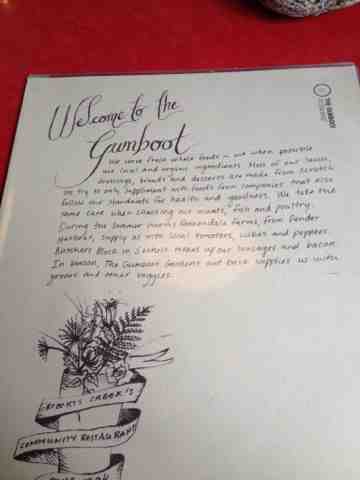 Welcome to the
Gumboot
We serve fresh whole foods and when possible
use local and organic ingredients. Most of our sauces,
dressings, breads and desserts are made from scratch.
We try to only supplement with foods from companies that also
follow our standards for health and goodness. We take the
same care when choosing our meats, fish and poultry.
During the summer months farm, from Pender
Harbour, supply us with local tomatoes, cukes and peppers.
Butchers Block in Sechelt makes all our sausages and bacon.
In season, The Gumboot Gardens out back supplies us with
greens and other veggies.
ROBERTS CREEK'S
COMMUNITY RESTAURANT
THE GUMBOOT